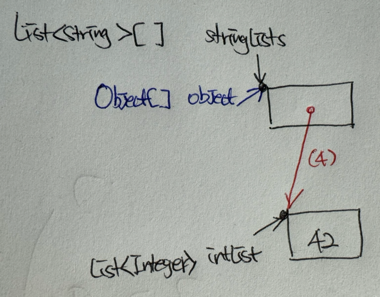 List<String>[] stringLists
Object[] object
(4)
List<Integer> intList
42